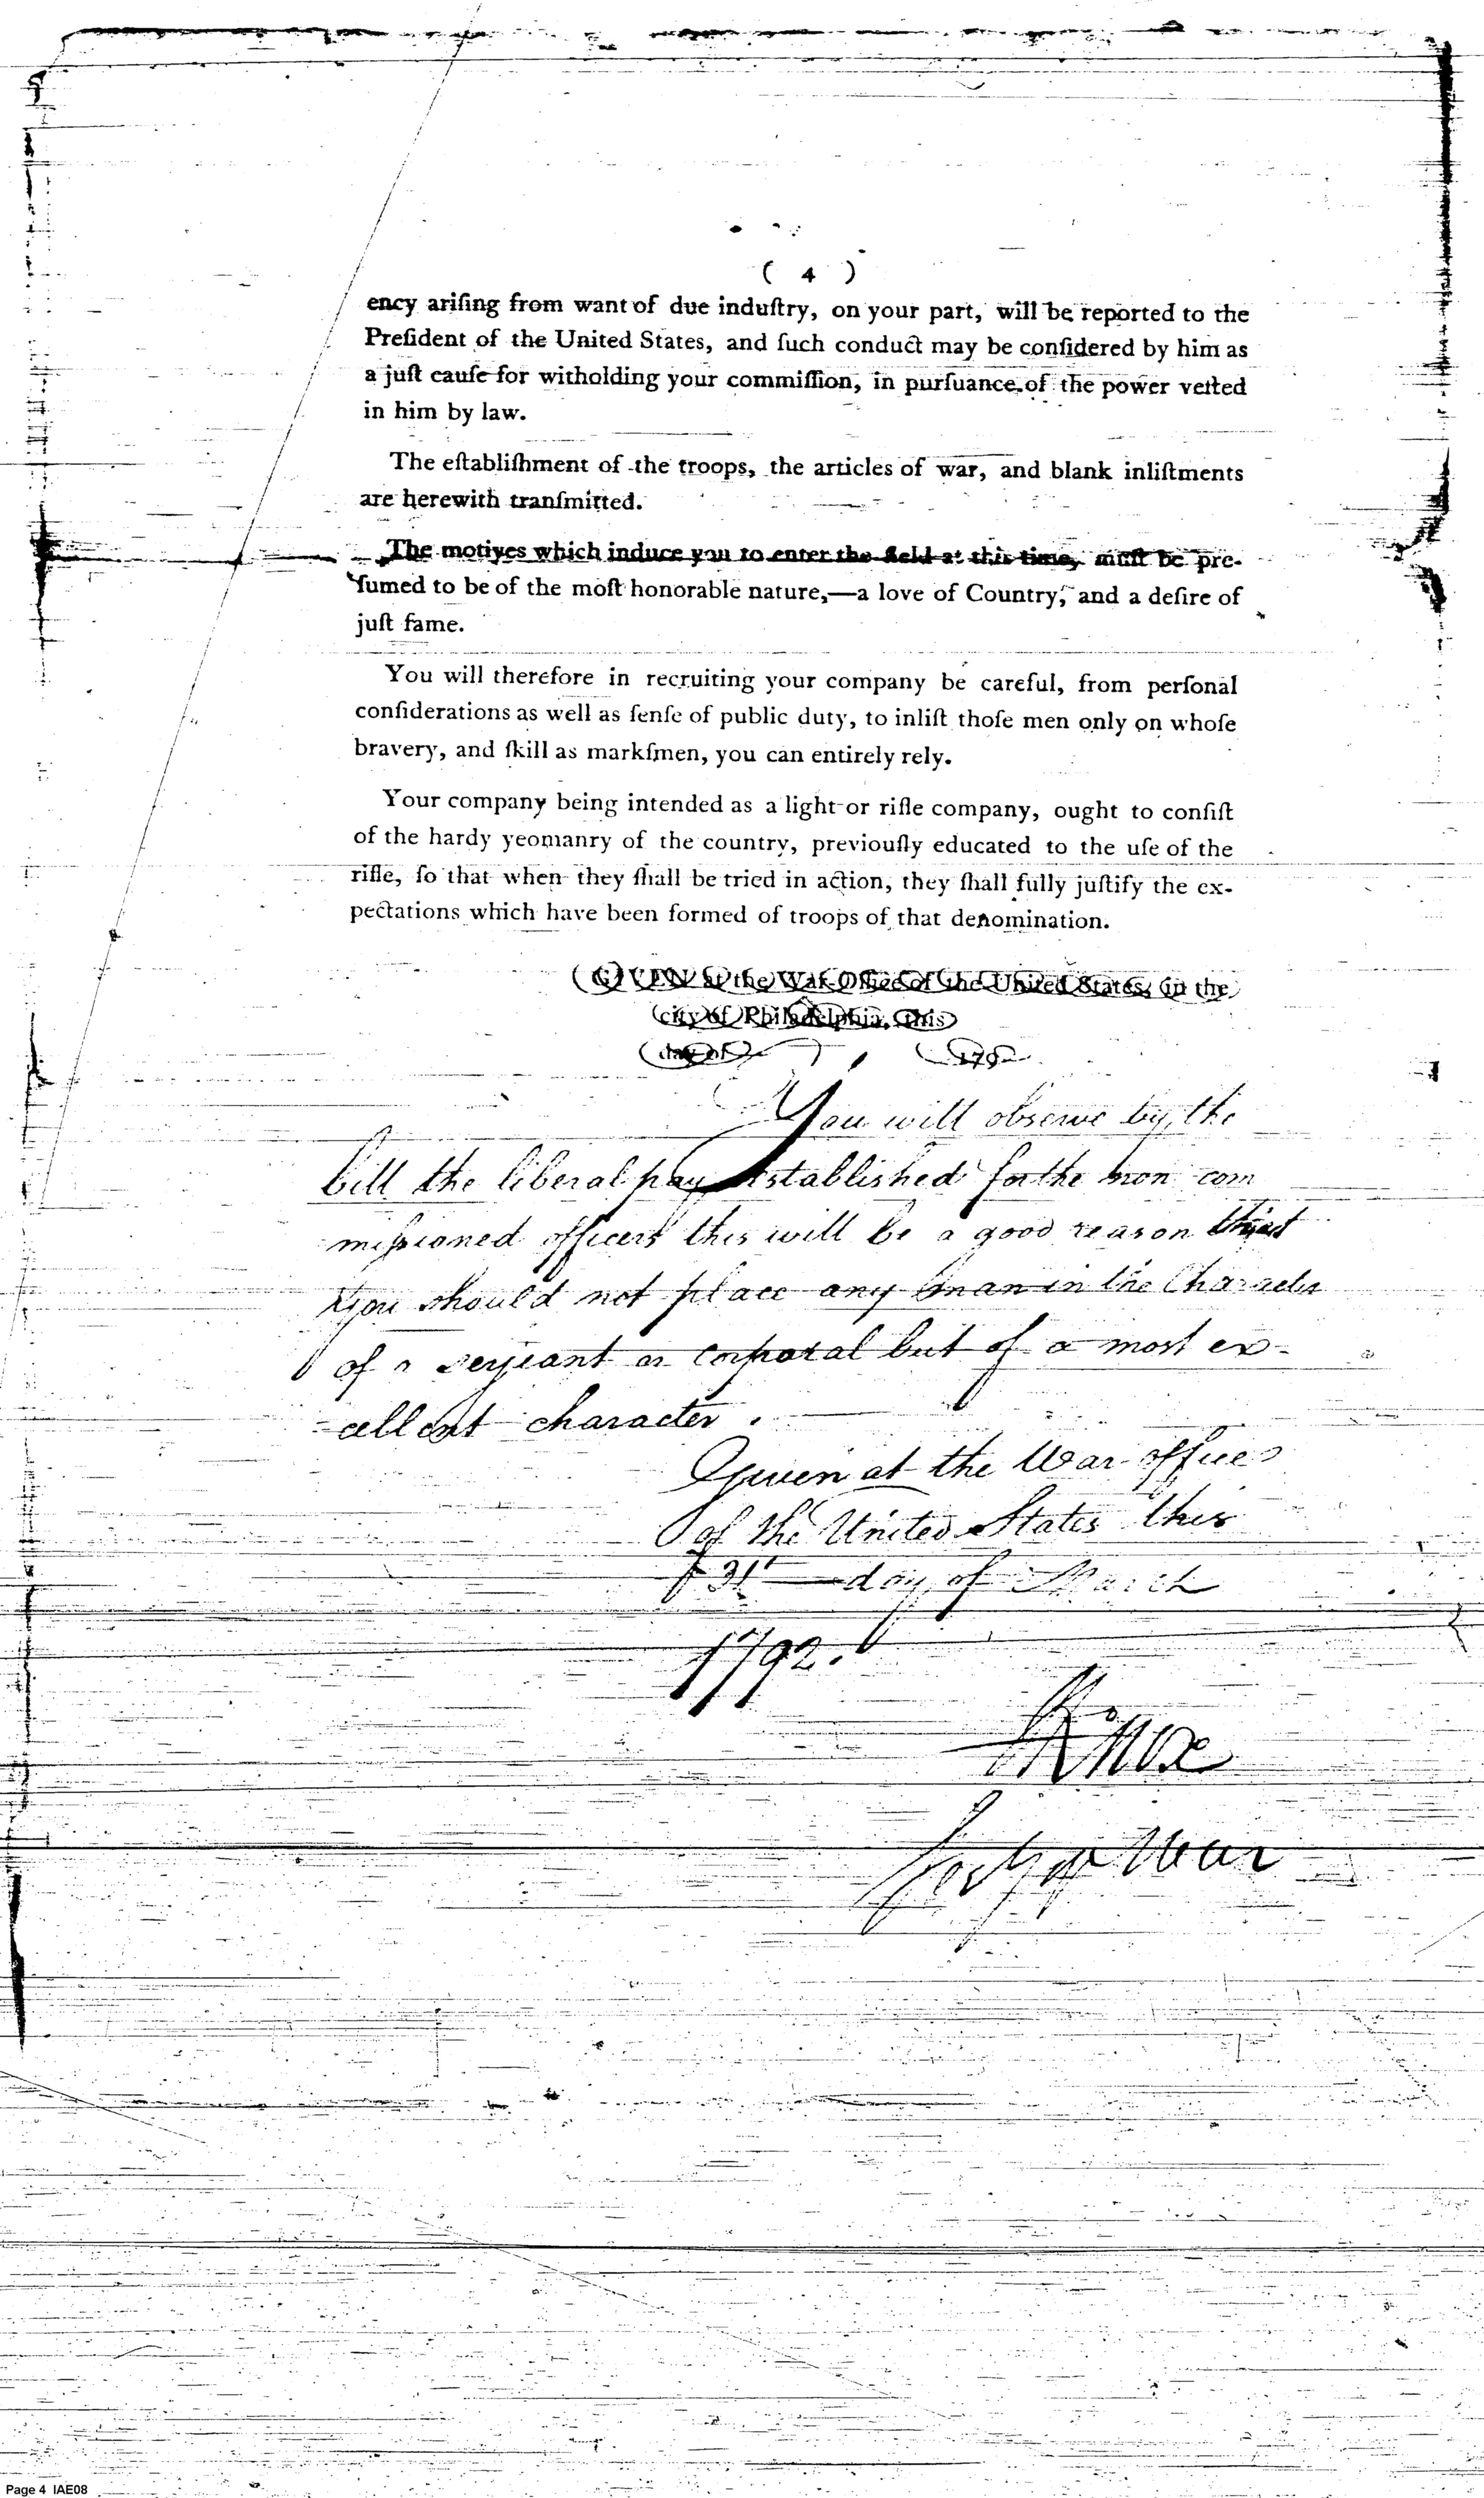 ( 4 )
ency ariſing from want of due induſtry, on your part, will be reported to the
Preſident of the United States, and ſuch conduct may be conſidered by him as
a juſt cauſe for witholding your commiſſion, in purſuance of the power veſted
in him by law.
The eſtabliſhment of the troops, the articles of war, and blank inliſtments
are herewith tranſmitted.
The motives which induce you to enter the field at this time, muſt be pre-
ſumed to be of the moſt honorable nature,—a love of Country, and a deſire of
juſt fame.
You will therefore in recruiting your company be careful, from perſonal
conſiderations as well as ſenſe of public duty, to inliſt thoſe men only on whoſe
bravery, and ſkill as markſmen, you can entirely rely.
Your company being intended as a light or rifle company, ought to conſiſt
of the hardy yeomanry of the country, previouſly educated to the uſe of the
rifle, ſo that when they ſhall be tried in action, they ſhall fully juſtify the ex-
pectations which have been formed of troops of that denomination.
GIVEN at the War-Office of the United States, in the
city of Philadelphia, this
day of 179
You will observe by the
bill the liberal pay established for the non com
miſsioned officers this will be a good reason that
you should not place any man in the Character
of a serjeant or corporal but of a most ex-
-cellent character.
Given at the War office
of the United States this
31st day of March
1792.
HKnox
Secy of War
Page 4 IAE08